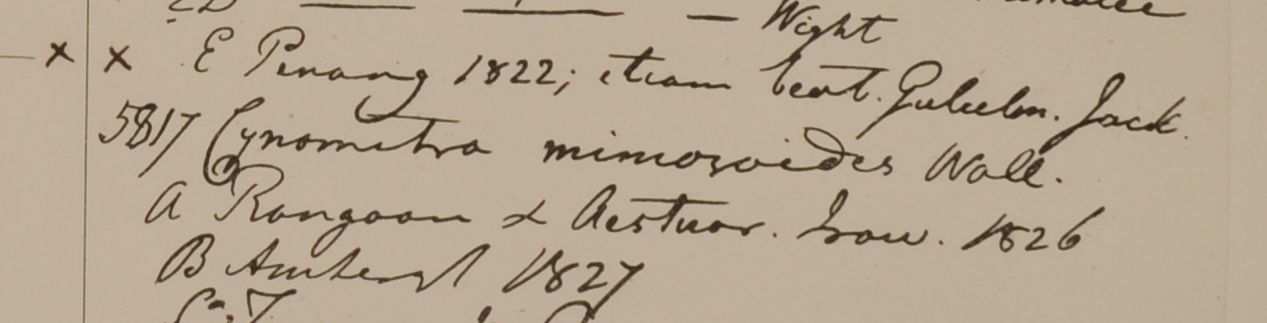 — Wight
x x E Penang 1822; etiam beat. Gulielm. Jack.
5817 Cynometra mimosoides Wall.
A Rangoon & Aestuar. Iraw. 1826
B Amherst 1827